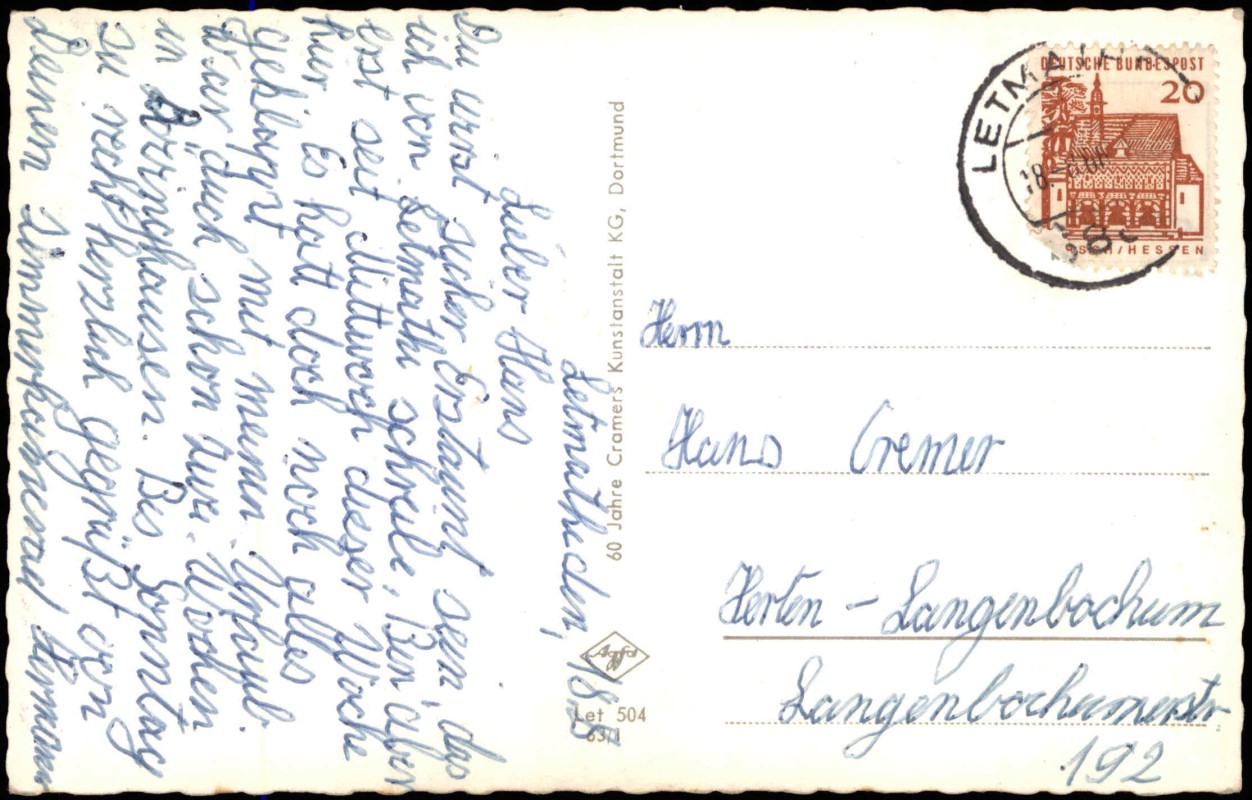 Letmathe den, 18.8.
Lieber Hans
Du wirst sicher Erstaunt sein das
ich von Letmathe schreibe, Bin aber
erst seit Mittwoch dieser Woche
hir. Es hatt doch noch alles
geklappt mit meinn Urlaub.
War auch schon zwei Wochen
in Bozinghausen. Bis Sonntag
zu recht herzlich gegrüßt von
Deinem Zimmerkamerad Hermann
60 Jahre Cramers Kunstanstalt KG, Dortmund
Agfa
Let 504
63/1
LETMATHE
DEUTSCHE BUNDESPOST
20
LORSCH/HESSEN
Herrn
Hans Cremer
Herten - Langenbochum
Langenbochumerstr
192